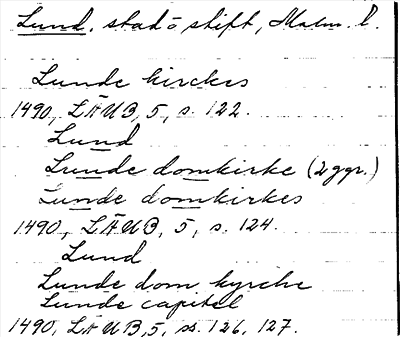 Lund, stad o stift, Malm. l.
Lunde kirckes
1490, LÄUB, 5, s. 122.
Lund
Lunde domkirke (2 ggr.)
Lunde domkirkes
1490, LÄUB, 5, s. 124.
Lund
Lunde dom kyrche
Lunde capitel
1490, LÄUB, 5, ss. 126, 127.